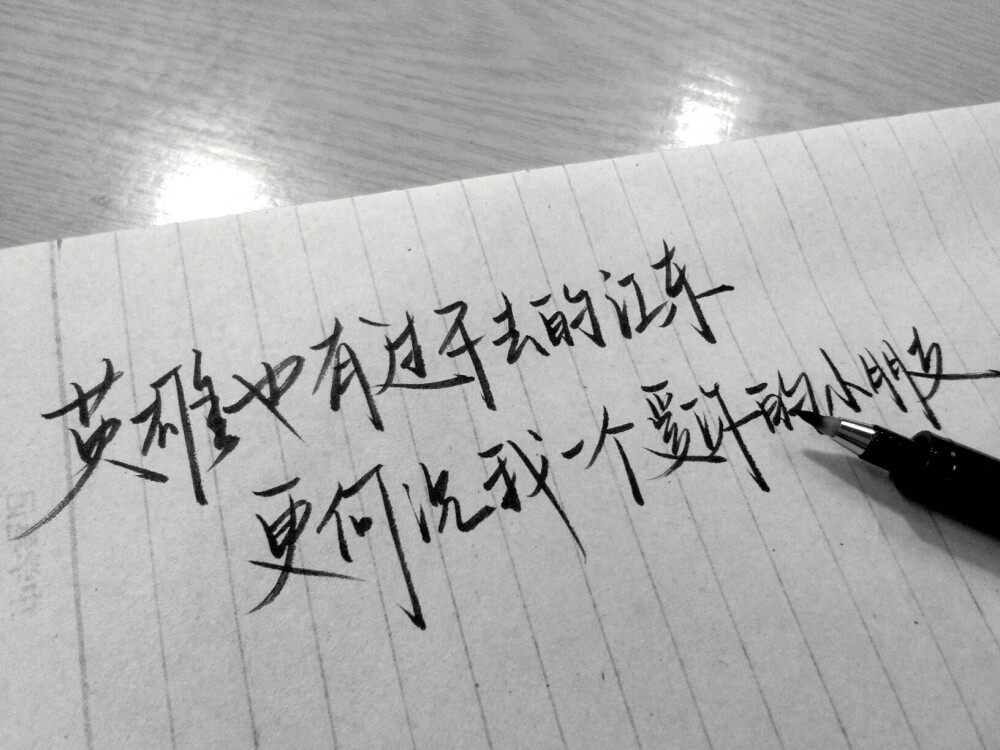 英雄也有过不去的江东
更何况我一个爱许的小朋友